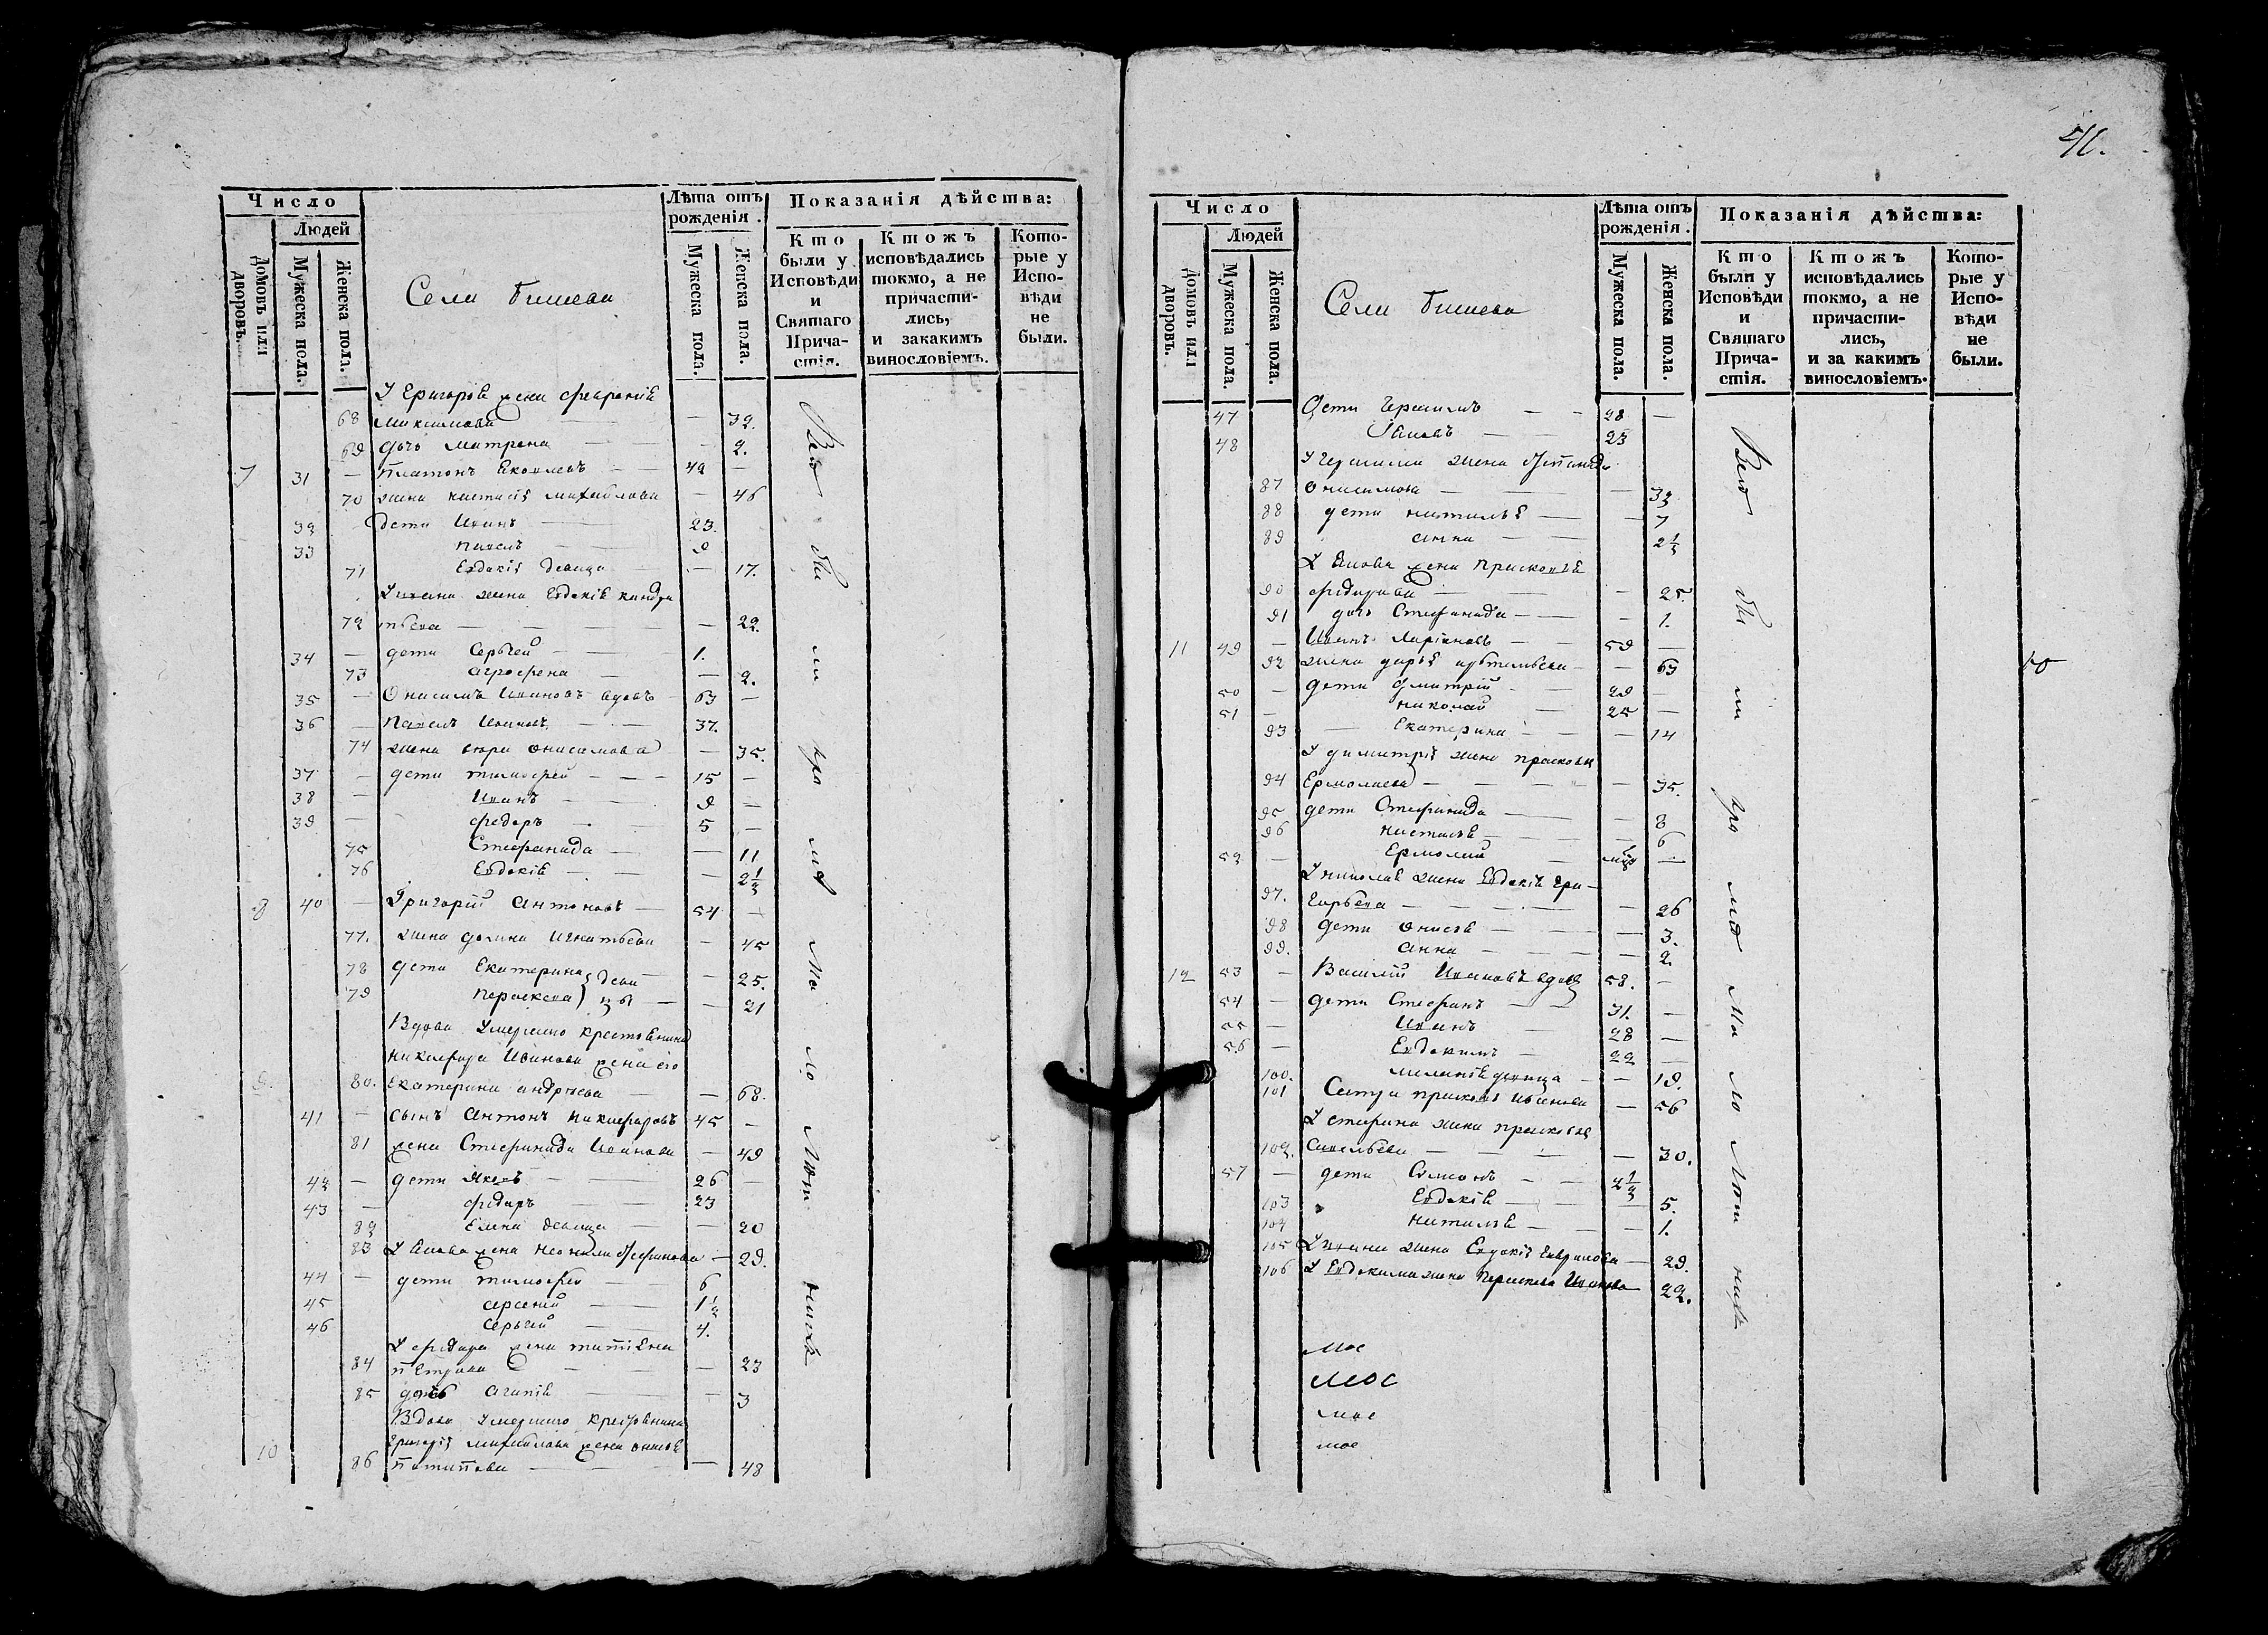 Число
Людей
Домовъ или дворовъ.
Мужеска пола.
Женска пола.
Села
Лѣта отъ рожденія.
Мужеска пола.
Женска пола.
Показанія дѣйства:
Кто были у Исповѣди и Святаго Прича-стія.
Ктожъ исповѣдались токмо, а не причасти-лись, и закакимъ винословіемъ.
Кото-рые у Испо-вѣди не были.
У Григорія жена
68 максимова 32.
69 дочь матрена — — 2.
7 31 — Платонъ Яковлевъ — 49 —
70 жена настасія михайлова — 46
32 дети Иванъ — 23.
33 павелъ — 9
71 Евдокія девица — 17.
У ивана жена Евдокія кондра
72 тьева — — 22.
34 — дети Сергей — 1.
73 агрофена — — 2.
35 — Онисимъ Ивановъ вдовъ 63 —
36 — павелъ Ивановъ — 37.
74 жена онисимова — 35.
37 — дети тимофей — — 15 —
38 — Иванъ — 9 —
39 — федоръ — 5 —
75 Стефанида — — 11
76 Евдокія — — 2½
8 40 — Григорій Антоновъ — 54 —
77. жена домна игнатьева — 45
78 дети Екатерина деви — 25.
79 Параскева цы — — 21
Вдова умершаго крестьянина
никифора Иванова жена его
9. 80. Екатерина андреева — — 68.
41 — сынъ антонъ никифоровъ 45 —
81 жена Стефанида Иванова — 49
42 — дети Яковъ — 26 —
43 — федоръ — 23
82 Елена девица — — 20
83 У Якова жена Стефанова — 29.
44 — дети тимофей — 6
45 арсеній — 1½
46 сергей — 4.
У федора жена татіяна
84 петрова — — 23
85 дочь агапія — — 3
Вдова умершаго крестьянина
Григорія михайлова жена
10 86 потапова — — 48
Всѣ бы ли кро мѣ ма ло лѣт нихъ
41.
Число
Людей
Домовъ или дворовъ.
Мужеска пола.
Женска пола.
Села
Лѣта отъ рожденія.
Мужеска пола.
Женска пола.
Показанія дѣйства:
Кто были у Исповѣди и Святаго Прича-стія.
Ктожъ исповѣдались токмо, а не причасти-лись, и за какимъ винословіемъ.
Кото-рые у Испо-вѣди не были.
47 Дети Герасимъ — — 28 —
48 Яковъ — — 23
У Герасима жена степанида
87 Онисимова — — 32
88 дети наталья — — 7
89 анна — — 2½
У Якова жена Прасковья
90 федорова — — 25.
91 дочь Стефанида — — 1.
11 49 — Иванъ Ларіоновъ — — 59 —
92 жена дарья — — 63
50 — дети дмитрій — 29 —
51 — николай — 25 —
93 — Екатерина — — 14
У димитрія жена прасковья
94 Ермолаева — — 35.
95 дети Стефанида — — 8
96 настасья — — 6
52 — Ермолай — —
У николая жена Евдокія Гри-
97. горьева — — 26
98 дети — — 3.
99. анна — — 2.
12 53 — Василій Ивановъ вдовъ 58. —
54 — дети Стефанъ — 31. —
55 — Иванъ — 28 —
56 — Евдокимъ — 22 —
100. меланія девица — — 19.
101 Сестра прасковья Иванова — 56
У стефана жена прасковья
102. Савельева — — 30.
57 — дети Симеонъ — 2½
103 Евдокія — — 5.
104 наталья — — 1.
105 У ивана жена Евдокія Гаврилова — 29.
106 У Евдокима жена Параскева Иванова — 22.
Всѣ бы ли кро мѣ ма ло лѣт нихъ
мос
мос
мос
мос